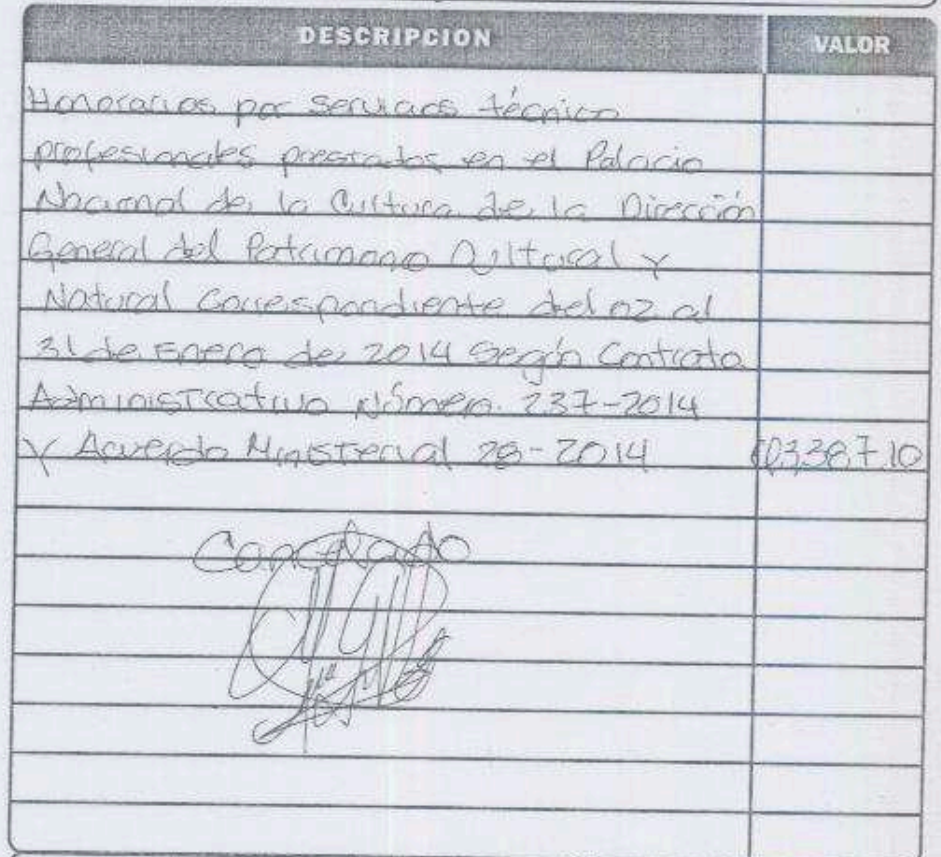 DESCRIPCION VALOR
Honorarios por servicios técnico
profesionales prestados en el Palacio
Nacional de la Cultura de la Dirección
General del Patrimonio Cultural y
Natural Correspondiente del 02 al
31 de Enero de 2014 Según Contrato
Administrativo Número. 237-2014
Y Acuerdo Ministerial 28-2014 Q3387.10
Cancelado